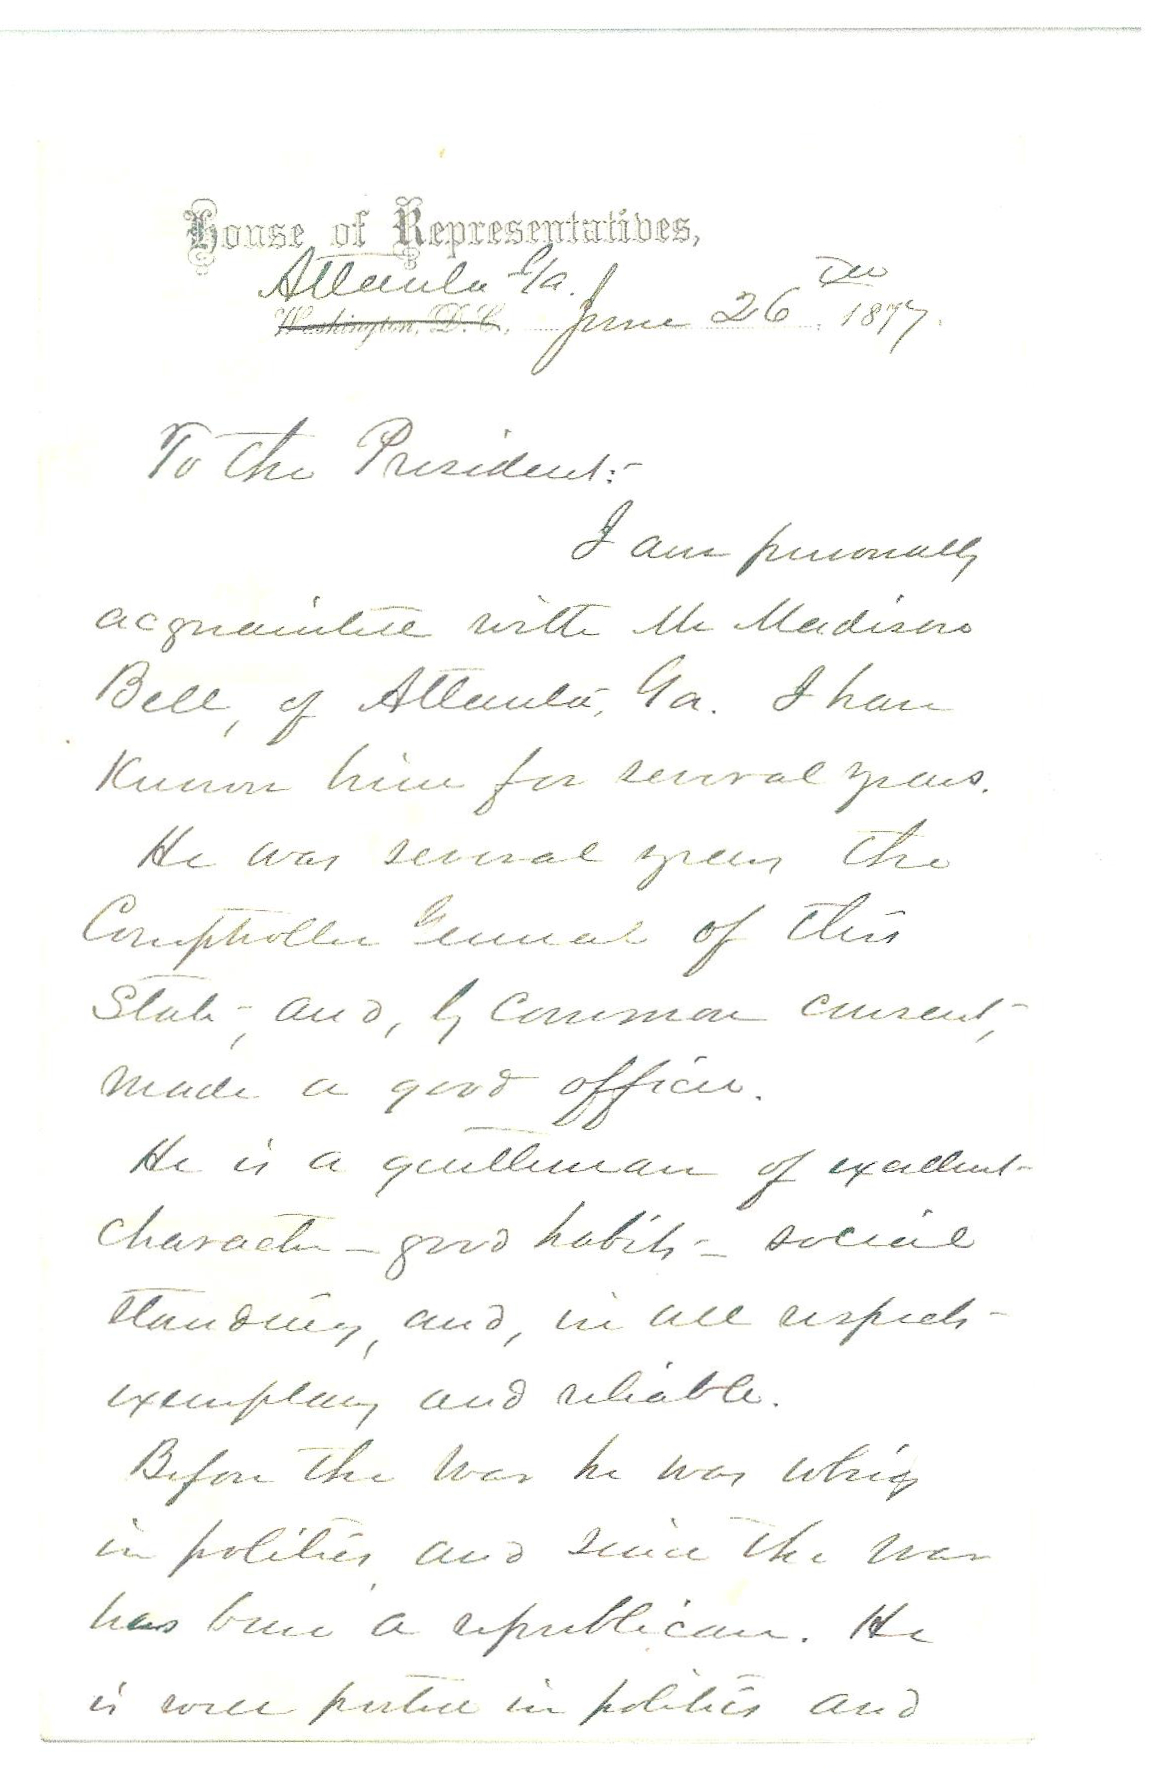 House of Representatives,
Atlanta Ga.
Washington, D.C., June 26th 1877.
To the President:-
I am personally
acquainted with Mr Madison
Bell, of Atlanta, Ga. I have
Known him for several years.
He was several years the
Comptroller General of this
State, and, by common consent,
made a good officer.
He is a gentleman of excellent
character - good habits - social
standing, and, in all respects
exemplary and reliable.
Before the war he was whig
in politics, and since the war
has been a republican. He
is well posted in politics and